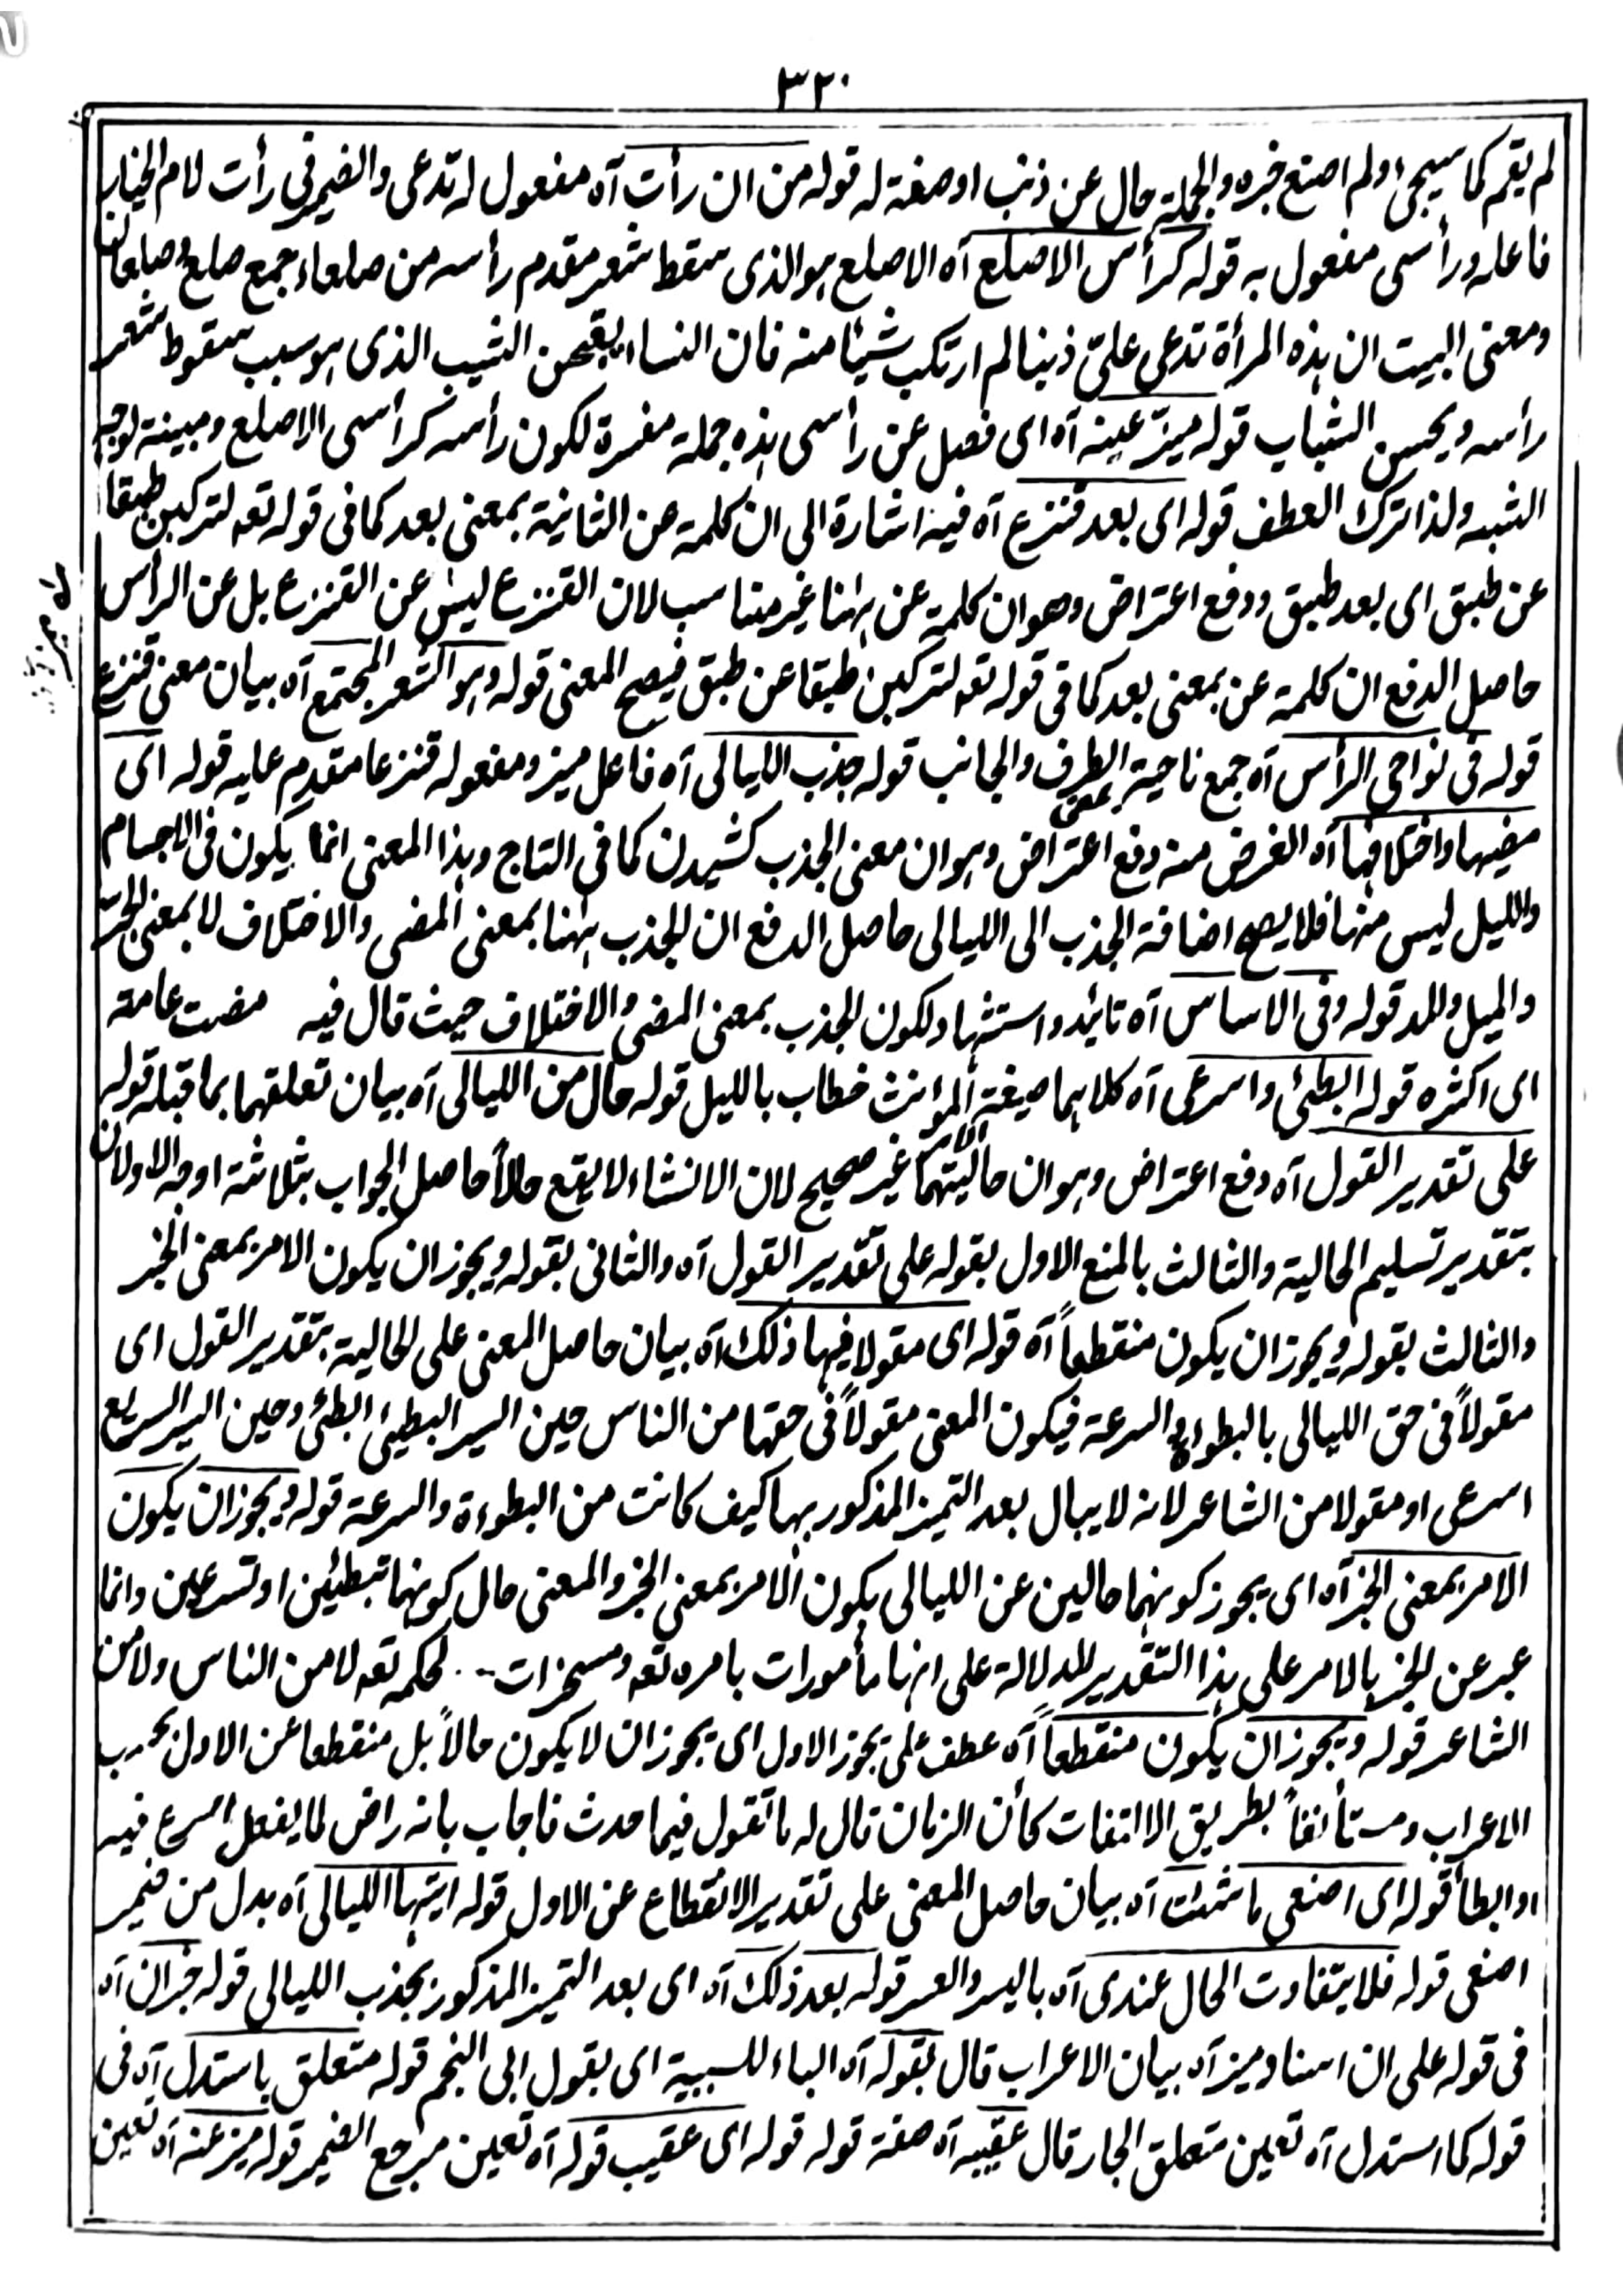 ٣٢٠
لم يقم كما سيجئ ولم اصنع خبره والجملة حال عن ذنب اوصفة له قوله من ان رأت آه مفعول له تدعى والضمير فى رأت لام الخيار
فاعله ورأسى مفعول به قوله كرأس الاصلع آه الاصلع هو الذى سقط شعر مقدم رأسه من صلعاء جمع صلع وصلعان
ومعنى البيت ان هذه المرأة تدعى علىّ ذنبا لم ارتكب شيئا منه فان النساء يقبحن الشيب الذى هو سبب سقوط شعر
رأسه ويحسن الشباب قوله ميّز عينه آه اى فصل عن رأسى هذه جملة مفسرة لكون رأسه كرأسى الاصلع ومبينة لوجه
الشبه ولذا ترك العطف قوله اى بعد قنزع آه فيه اشارة الى ان كلمة عن الثانية بمعنى بعد كما فى قوله تعه لتركبن طبقا
عن طبق اى بعد طبق ودفع اعتراض وهو ان كلمة عن ههنا غير مناسب لان القنزع ليس عن القنزع بل عن الرأس
حاصل الدفع ان كلمة عن بمعنى بعد كما فى قوله تعه لتركبن طبقا عن طبق فيصح المعنى قوله وهو الشعر المجتمع آه بيان معنى قنزع
قوله فى نواحى الرأس آه جمع ناحية الطرف والجانب قوله جذب الليالى آه فاعل ميز ومفعوله قنزعا مقدم عليه قوله اى
مضيها واختلافها آه الغرض منه دفع اعتراض وهو ان معنى الجذب كشيدن كما فى التاج وهذا المعنى انما يكون فى الاجسام
والليل ليس منها فلا يصح اضافة الجذب الى الليالى حاصل الدفع ان الجذب ههنا بمعنى المضى والاختلاف لا بمعنى الجر
والميل والمد قوله وفى الاساس آه تائيد واستشهاد لكون الجذب بمعنى المضى والاختلاف حيث قال فيه مضت عامة
اى اكثره قوله ابطئى واسرعى آه كلاهما صيغة المؤنث خطاب بالليل قوله حال من الليالى آه بيان تعلقهما بما قبله قوله
على تقدير القول آه دفع اعتراض وهو ان حاليتهما غير صحيح لان الانشاء لا يقع حالاً حاصل الجواب بثلاثة اوجه الاولان
بتقدير تسليم الحالية والثالث بالمنع الاول بقوله على تقدير القول آه والثانى بقوله ويجوز ان يكون الامر بمعنى الخبر
والثالث بقوله ويجوز ان يكون منقطعاً آه قوله اى مقولا فيها ذلك آه بيان حاصل المعنى على الحالية بتقدير القول اى
مقولاً فى حق الليالى بالبطواءة والسرعة فيكون المعنى مقولاً فى حقها من الناس حين السير البطيئ ابطئى وحين السير السريع
اسرعى او مقولا من الشاعر لانه لا يبال بعد التميز المذكور بها كيف كانت من البطوءة والسرعة قوله ويجوز ان يكون
الامر بمعنى الخبر آه اى يجوز كونهما حالين عن الليالى بكون الامر بمعنى الخبر والمعنى حال كونها تبطئين او تسرعين وانما
عبر عن الخبر بالامر على هذا التقدير للدلالة على انها مأمورات بامره تعه ومسخرات لحكمه تعه لا من الناس ولا من
الشاعر قوله ويجوز ان يكون منقطعاً آه عطف على يجوز الاول اى يجوز ان لا يكون حالاً بل منقطعا عن الاول بحسب
الاعراب ومستأنفاً بطريق الالتفات كأن الزمان قال له ما تقول فيما حدث فاجاب بانه راض لما يفعل اسرع فيه
او ابطأ قوله اى اصنعى ما شئت آه بيان حاصل المعنى على تقدير الانقطاع عن الاول قوله ايتها الليالى آه بدل من ضمير
اصنعى قوله فلا يتفاوت الحال عندى آه باليسر والعسر قوله بعد ذلك آه اى بعد التميز المذكور بجذب الليالى قوله خبر ان آه
فى قوله على ان اسناد ميز آه بيان الاعراب قال بقوله آه الباء للسببية اى بقول ابى النجم قوله متعلق باستدل آه فى
قوله كما استدل آه تعين متعلق الجار قال عقيبه آه صفة قوله قوله اى عقيب قوله آه تعين مرجع الضمير قوله ميز عنه آه تعين